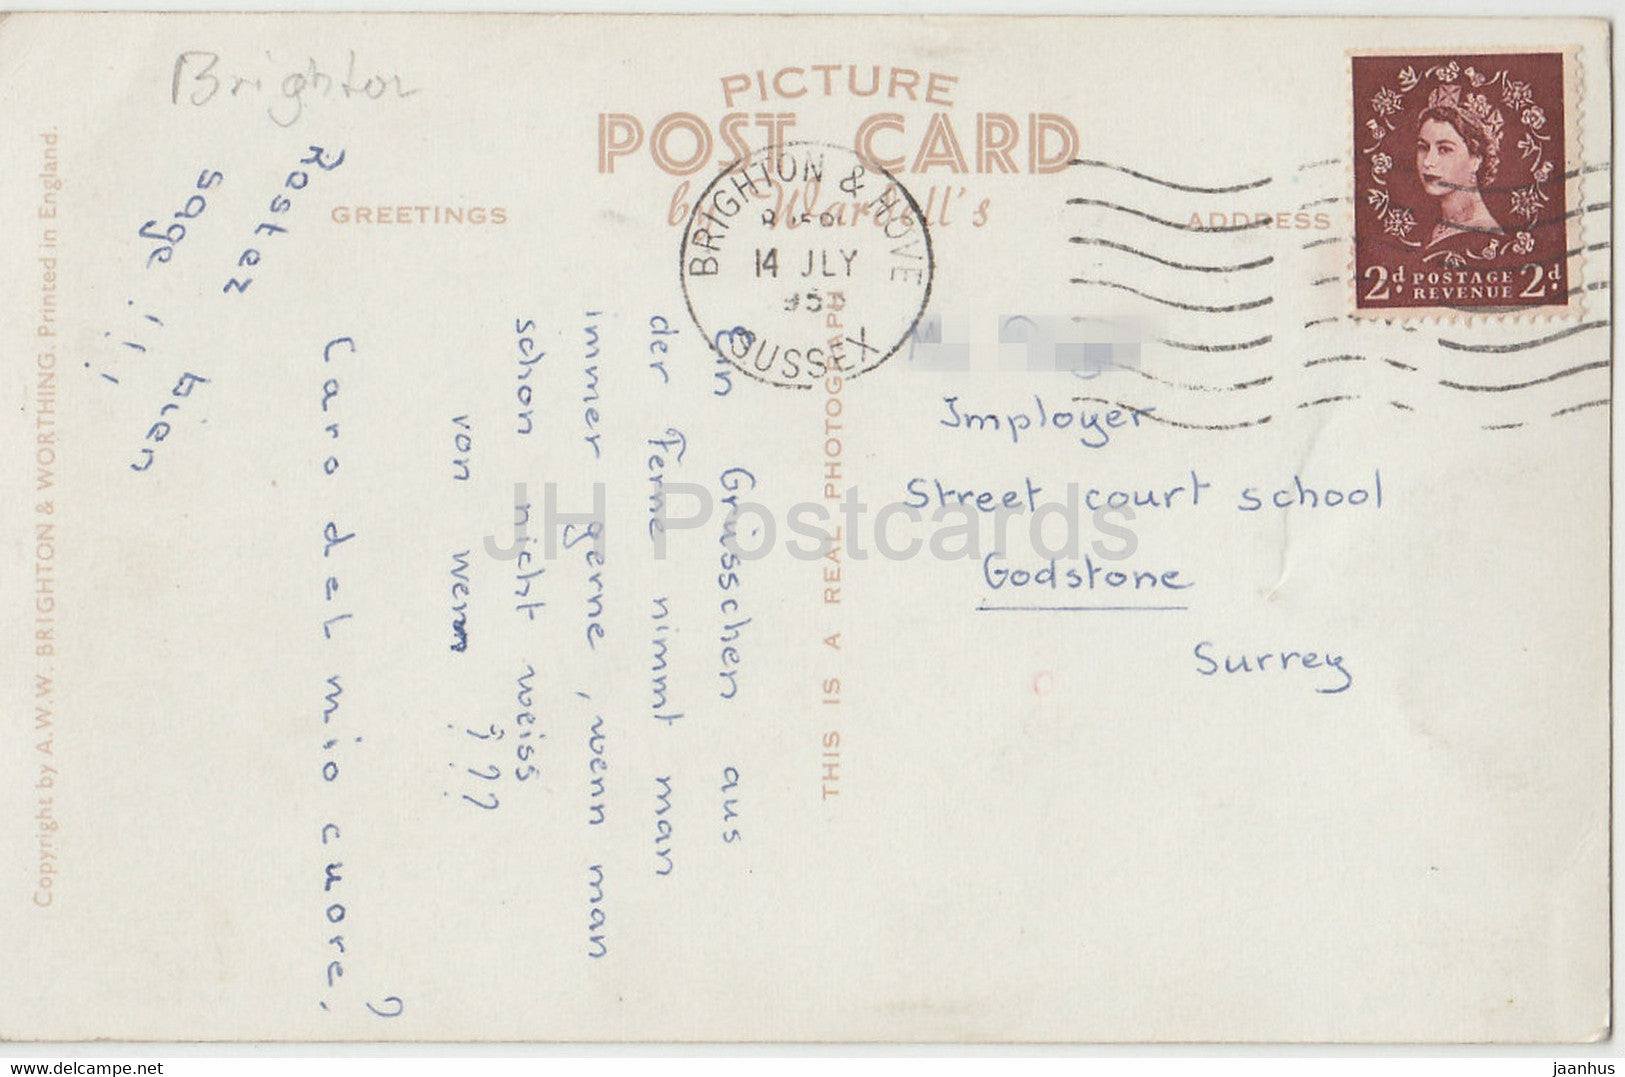 Brighton
PICTURE
POST CARD
by Wardell's
GREETINGS
ADDRESS
BRIGHTON & HOVE
14 JLY
SUSSEX
2d POSTAGE 2d
REVENUE
Imployer
Street court school
Godstone
Surrey
Ein Grüsschen aus
der Ferne nimmt man
immer gerne, wenn man
schon nicht weiss
von wem ???
Caro del mio cuore,
sage
THIS IS A REAL PHOTOGRAPH
Copyright by A.W.W. BRIGHTON & WORTHING. Printed in England.
JH Postcards
delcampe.net
jaanhus